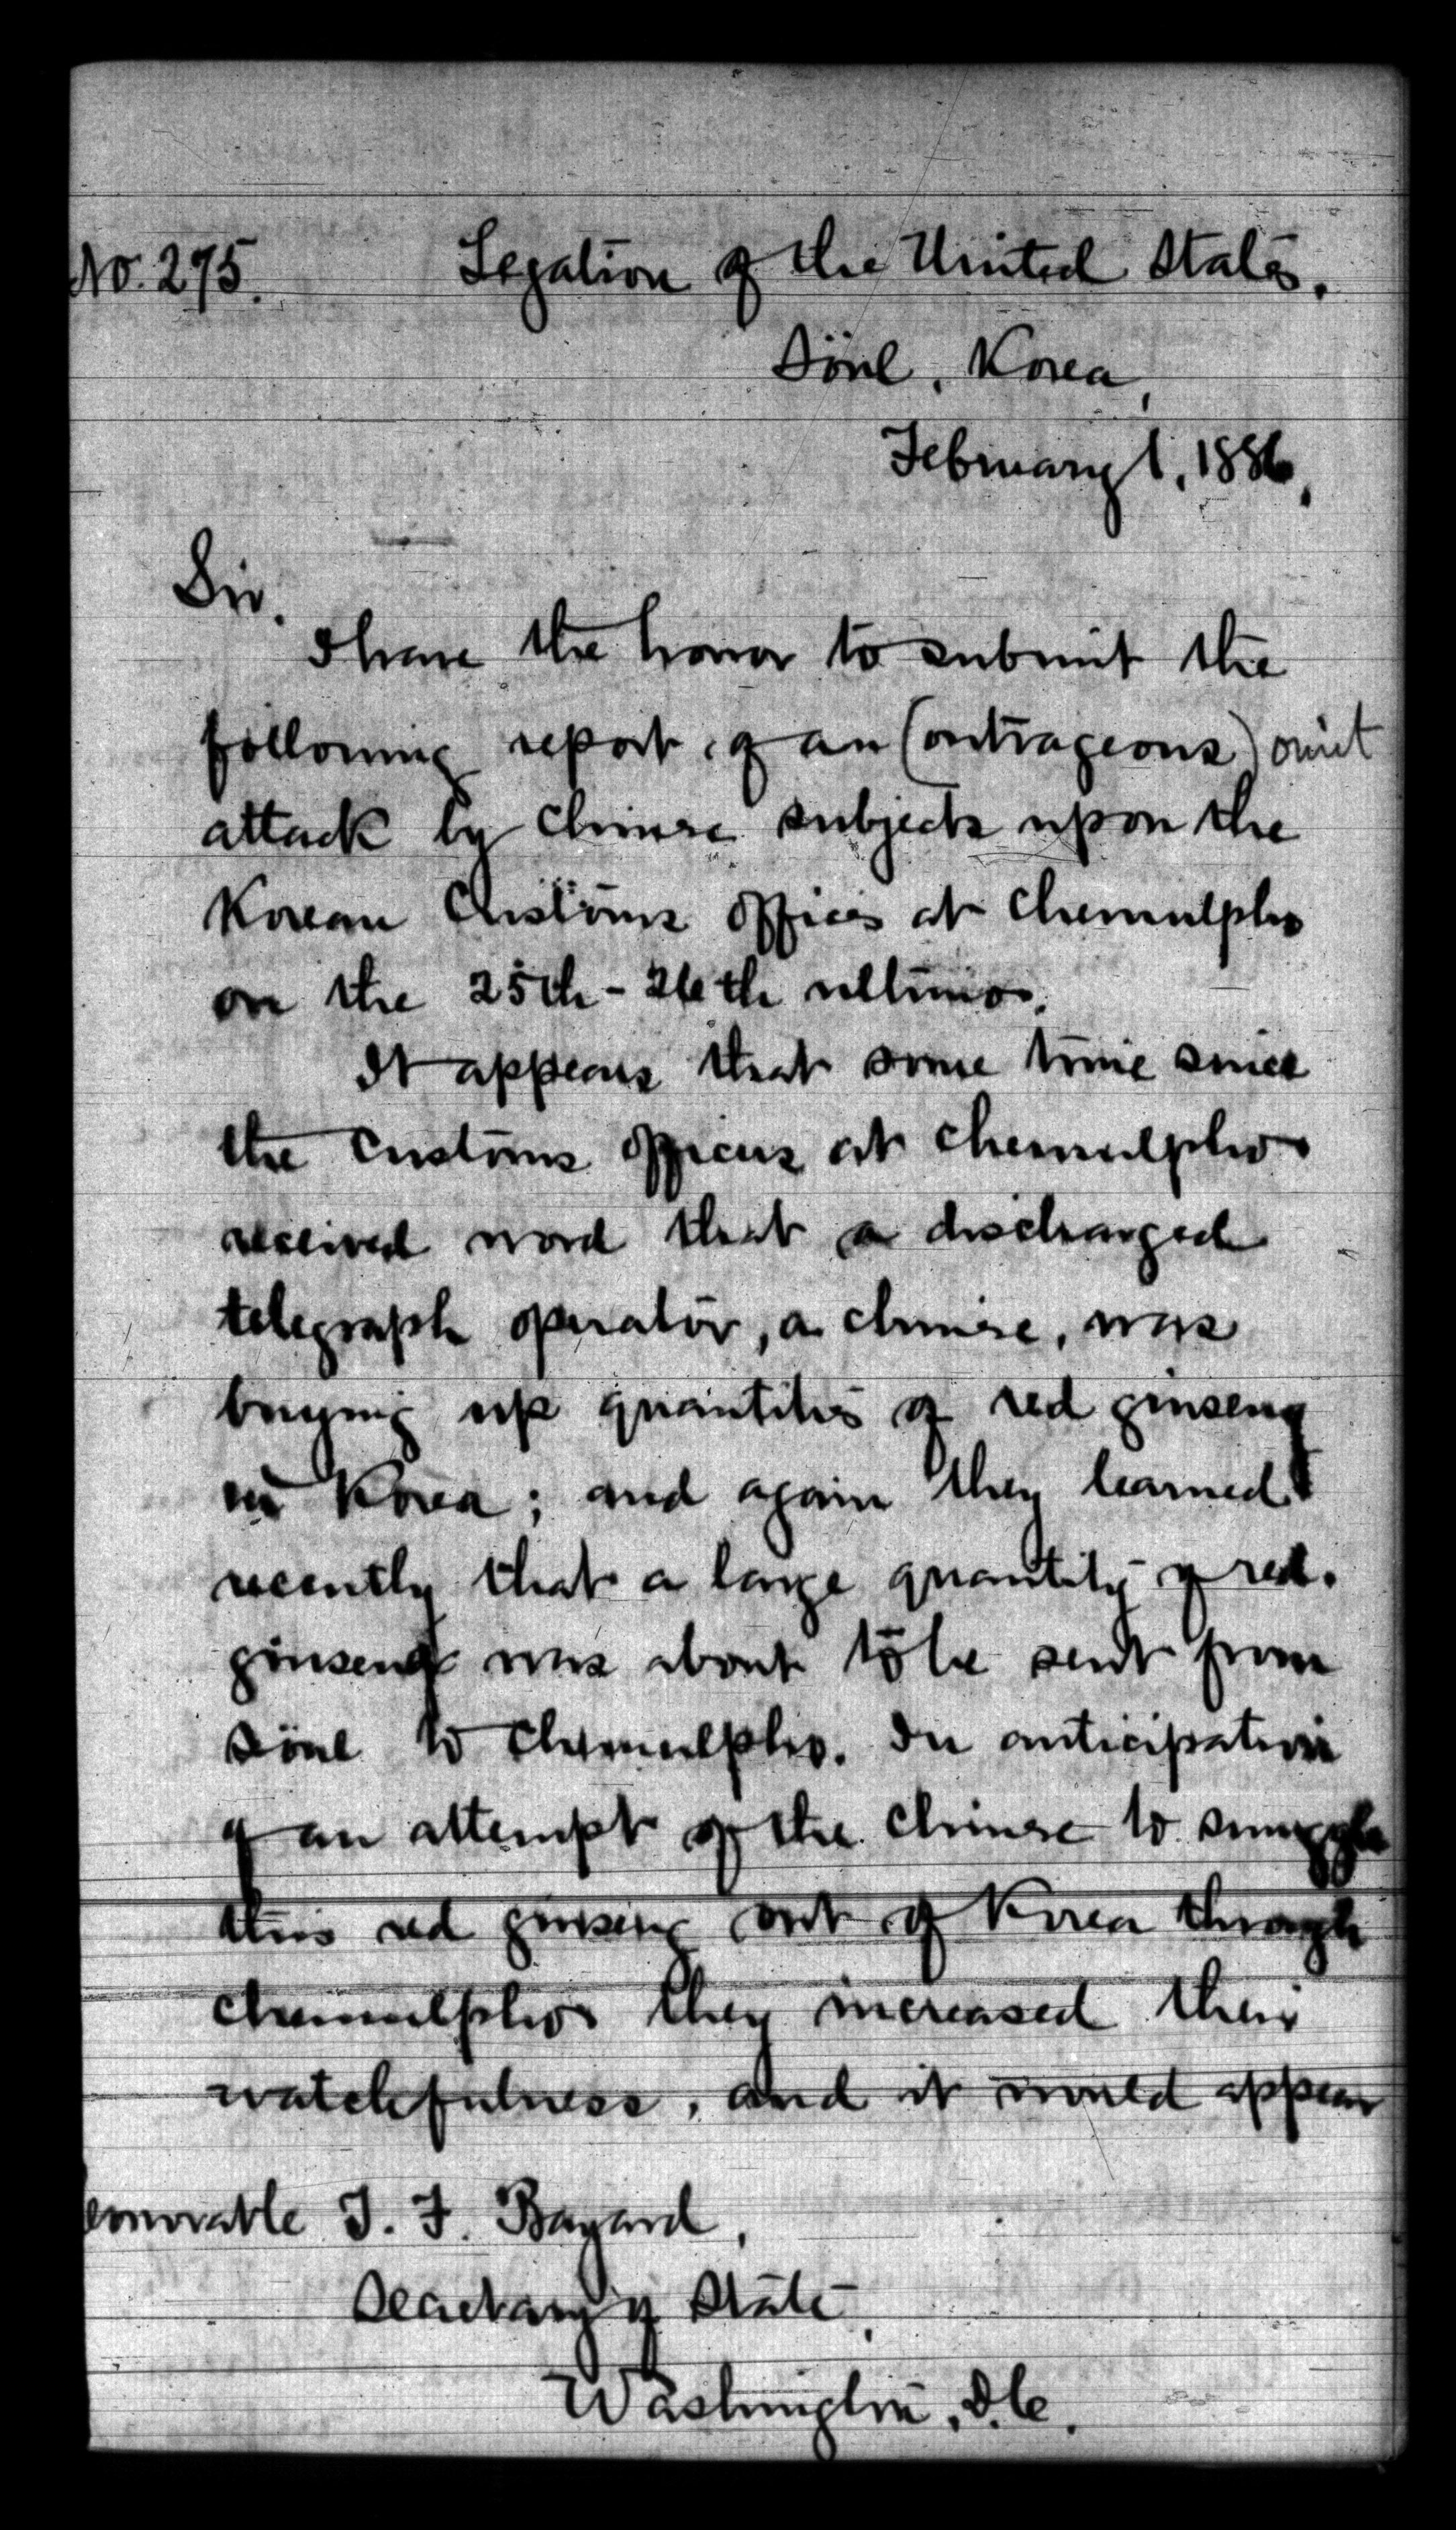 No. 275.
Legation of the United States,
Söul, Korea,
February 1, 1886,
Sir.
I have the honor to submit the
following report of an (outrageous) omit
attack by Chinese subjects upon the
Korean Customs offices at Chemulpho
on the 25th - 26th ultimo.
It appears that some time since
the Customs officers at Chemulpho
received word that a discharged
telegraph operator, a Chinese, was
buying up quantities of red ginseng
in Korea; and again they learned
recently that a large quantity of red
ginseng was about to be sent from
Söul to Chemulpho. In anticipation
of an attempt of the Chinese to smuggle
this red ginseng out of Korea through
Chemulpho they increased their
watchfulness, and it would appear
onorable T. F. Bayard,
Secretary of State,
Washington, D.C.